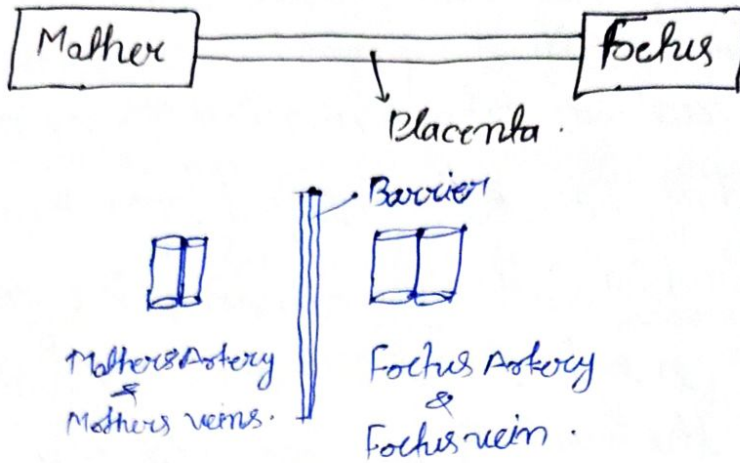 Mother
Foetus
Placenta.
Barrier
Mothers Artery
&
Mothers veins.
Foetus Artery
&
Foetus vein.